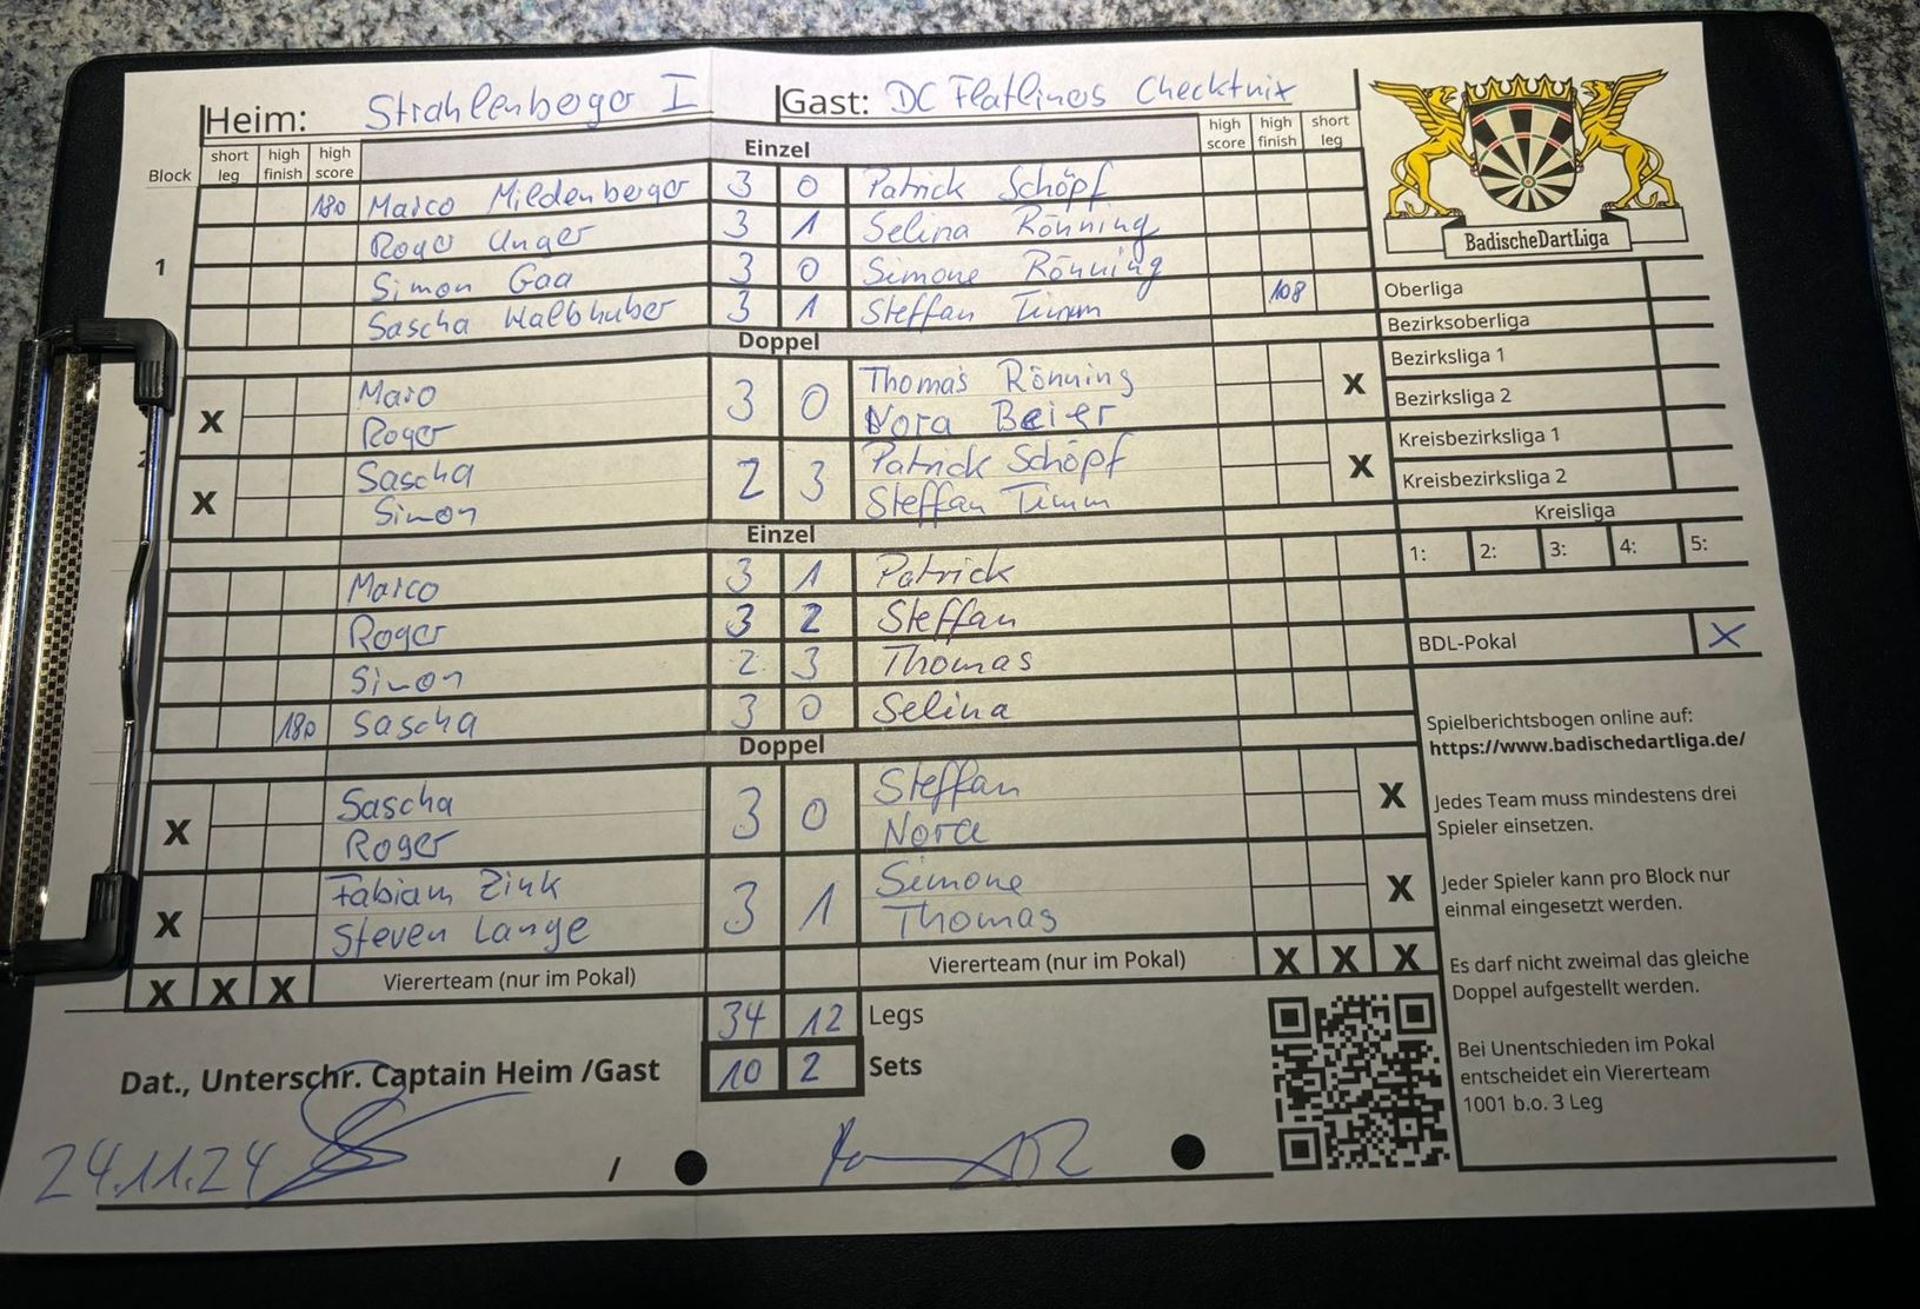 Heim: Strahlenberger I Gast: DC Flatliners Checktnix
Block short leg high finish high score Einzel high score high finish short leg
180 Marco Mildenberger 3 0 Patrick Schöpf
Roger Unger 3 1 Selina Rönning
1 Simon Gaa 3 0 Simone Rönning
Sascha Walbhuber 3 1 Steffan Timm 108
Doppel
X Maro 3 0 Thomas Rönning X
Roger Nora Beier
X Sascha 2 3 Patrick Schöpf X
Simon Steffan Timm
Einzel
Marco 3 1 Patrick
Roger 3 2 Steffan
Simon 2 3 Thomas
180 Sascha 3 0 Selina
Doppel
X Sascha 3 0 Steffan X
Roger Nora
X Fabian Zink 3 1 Simone X
Steven Lange Thomas
X X X Viererteam (nur im Pokal) Viererteam (nur im Pokal) X X X
34 12 Legs
Dat., Unterschr. Captain Heim /Gast 10 2 Sets
24.11.24 /
BadischeDartLiga
Oberliga
Bezirksoberliga
Bezirksliga 1
Bezirksliga 2
Kreisbezirksliga 1
Kreisbezirksliga 2
Kreisliga
1: 2: 3: 4: 5:
BDL-Pokal X
Spielberichtsbogen online auf:
https://www.badischedartliga.de/
Jedes Team muss mindestens drei
Spieler einsetzen.
Jeder Spieler kann pro Block nur
einmal eingesetzt werden.
Es darf nicht zweimal das gleiche
Doppel aufgestellt werden.
Bei Unentschieden im Pokal
entscheidet ein Viererteam
1001 b.o. 3 Leg